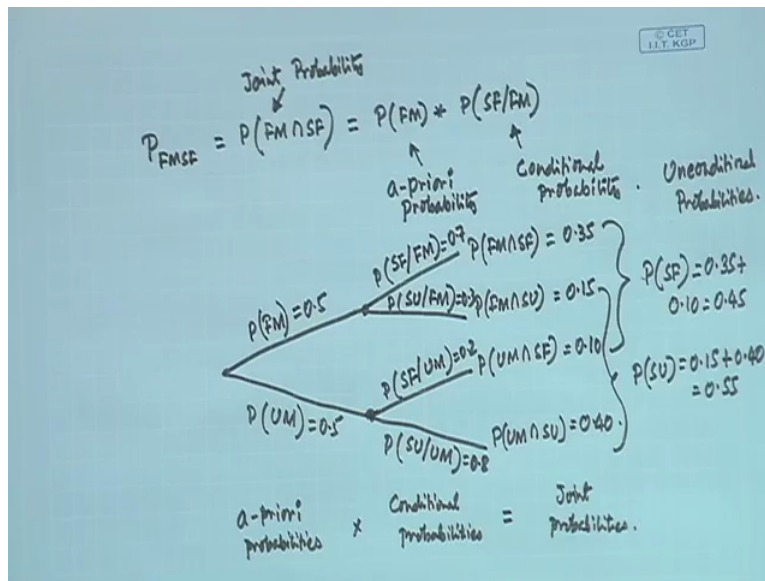 © CET
I.I.T. KGP
Joint Probability
P_FMSF = P(FM∩SF) = P(FM) * P(SF/FM)
a-priori
Probability
Conditional
Probability.
Unconditional
Probabilities.
P(FM)=0.5
P(SF/FM)=0.7
P(FM∩SF) = 0.35
P(SU/FM)=0.3
P(FM∩SU) = 0.15
P(SF)=0.35+
0.10=0.45
P(UM)=0.5
P(SF/UM)=0.2
P(UM∩SF) = 0.10
P(SU/UM)=0.8
P(UM∩SU)=0.40
P(SU)=0.15+0.40
=0.55
a-priori
probabilities
×
Conditional
probabilities
=
Joint
probabilities.